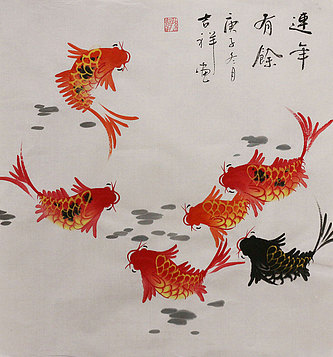 連年
有餘
庚子冬月
吉祥堂